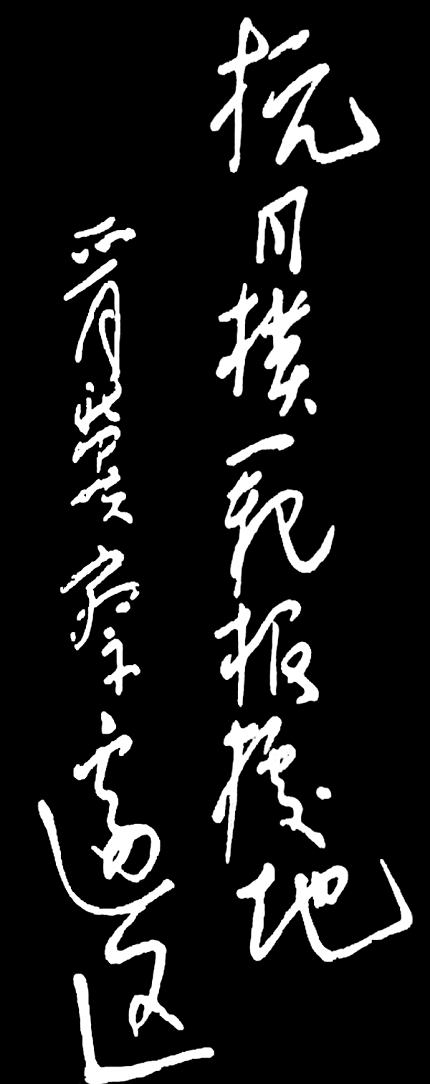 抗日模范根据地
晋冀察边区